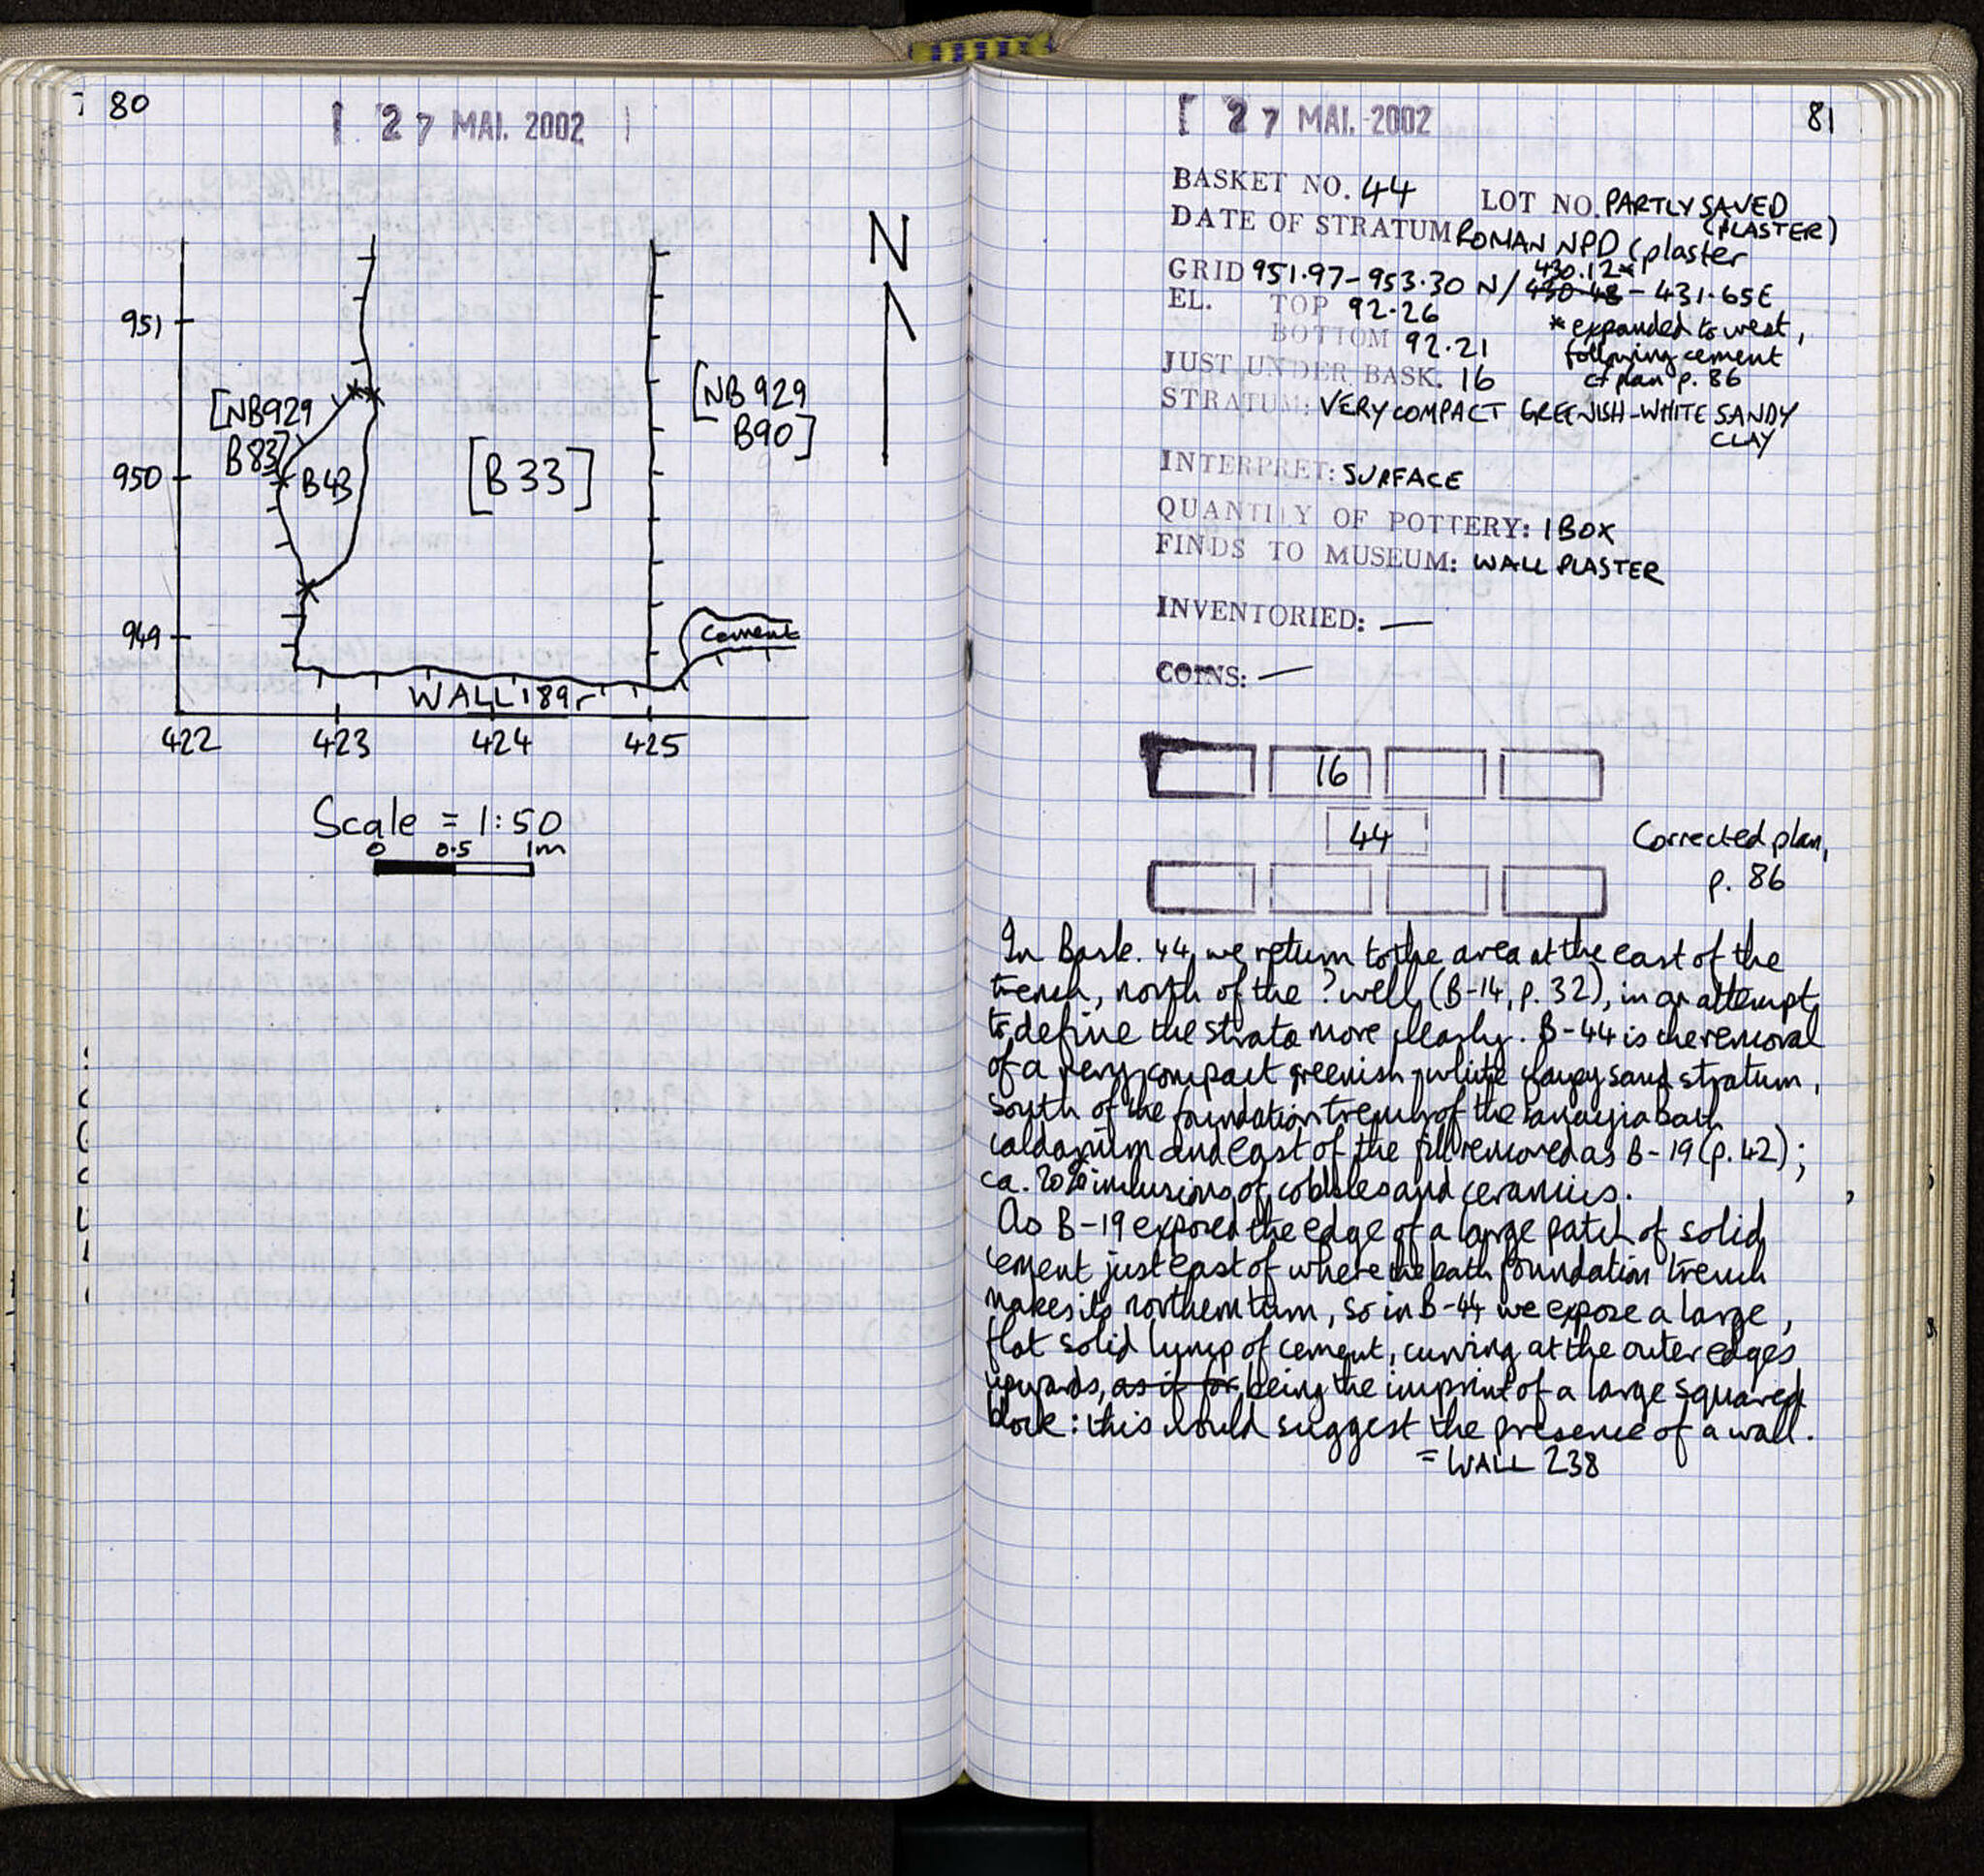 80
27 MAI. 2002
N
951
950
949
[NB929
B83]
B43
[B33]
[NB929
B90]
Cement
WALL 189
422 423 424 425
Scale = 1:50
0 0.5 1m
27 MAI. 2002
81
BASKET NO. 44 LOT NO. PARTLY SAVED
(PLASTER)
DATE OF STRATUM ROMAN NPD (plaster
430.12*
GRID 951.97-953.30 N/ 430.48 - 431.65E
EL. TOP 92.26
* expanded to west,
BOTTOM 92.21
following cement
cf plan p. 86
JUST UNDER BASK. 16
STRATUM: VERY COMPACT GREENISH-WHITE SANDY
CLAY
INTERPRET: SURFACE
QUANTITY OF POTTERY: 1 BOX
FINDS TO MUSEUM: WALL PLASTER
INVENTORIED: —
COINS: —
16
44
Corrected plan,
p. 86
In Bask. 44, we return to the area at the east of the
trench, north of the ? well (B-14, p. 32), in an attempt
to define the strata more clearly. B-44 is the removal
of a very compact greenish-white clayey sand stratum,
south of the foundation trench of the Panayia bath
caldarium and east of the fill removed as B-19 (p. 42);
ca. 20% inclusions of cobbles and ceramics.
As B-19 exposed the edge of a large patch of solid
cement just east of where the bath foundation trench
makes its northern turn, so in B-44 we expose a large,
flat solid lump of cement, curving at the outer edges
upwards, as if for being the imprint of a large squared
block: this would suggest the presence of a wall.
= WALL 238